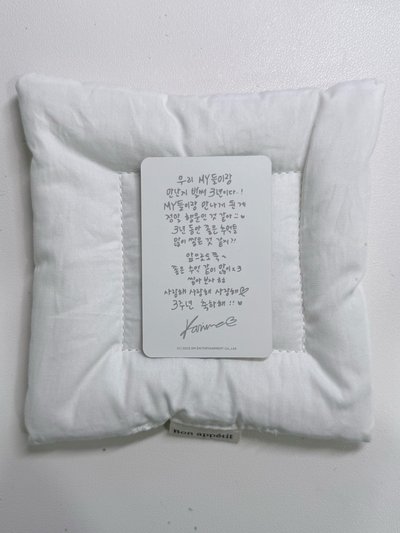 우리 MY들이랑
만난지 벌써 3년이다..!
MY들이랑 만나게 된 게
정말 행운인 것 같아 ::
3년 동안 좋은 추억들
많이 만든 것 같아?!
앞으로도 쭉~
좋은 추억 같이 많이 x3
쌓아 보아 ㅎㅎ
사랑해 사랑해 사랑해♡
3주년 축하해!!
Karina
(C) 2023 SM ENTERTAINMENT Co., Ltd.
Bon appétit